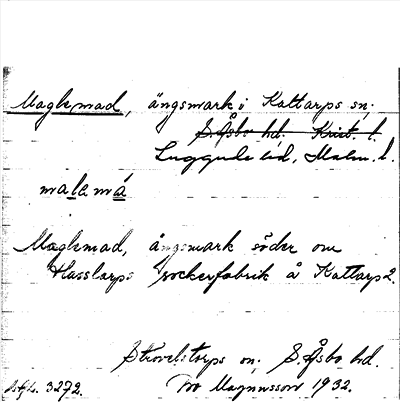 Maglemad, ängsmark i Kattarps sn.
S. Åsbo hd. Krist. l.
Luggude hd, Malm. l.
malemá
Maglemad, ängsmark söder om
Hasslarps sockerfabrik å Kattarp 2.
Strövelstorps sn. S. Åsbo hd.
3272. Ivo Magnusson 1932.